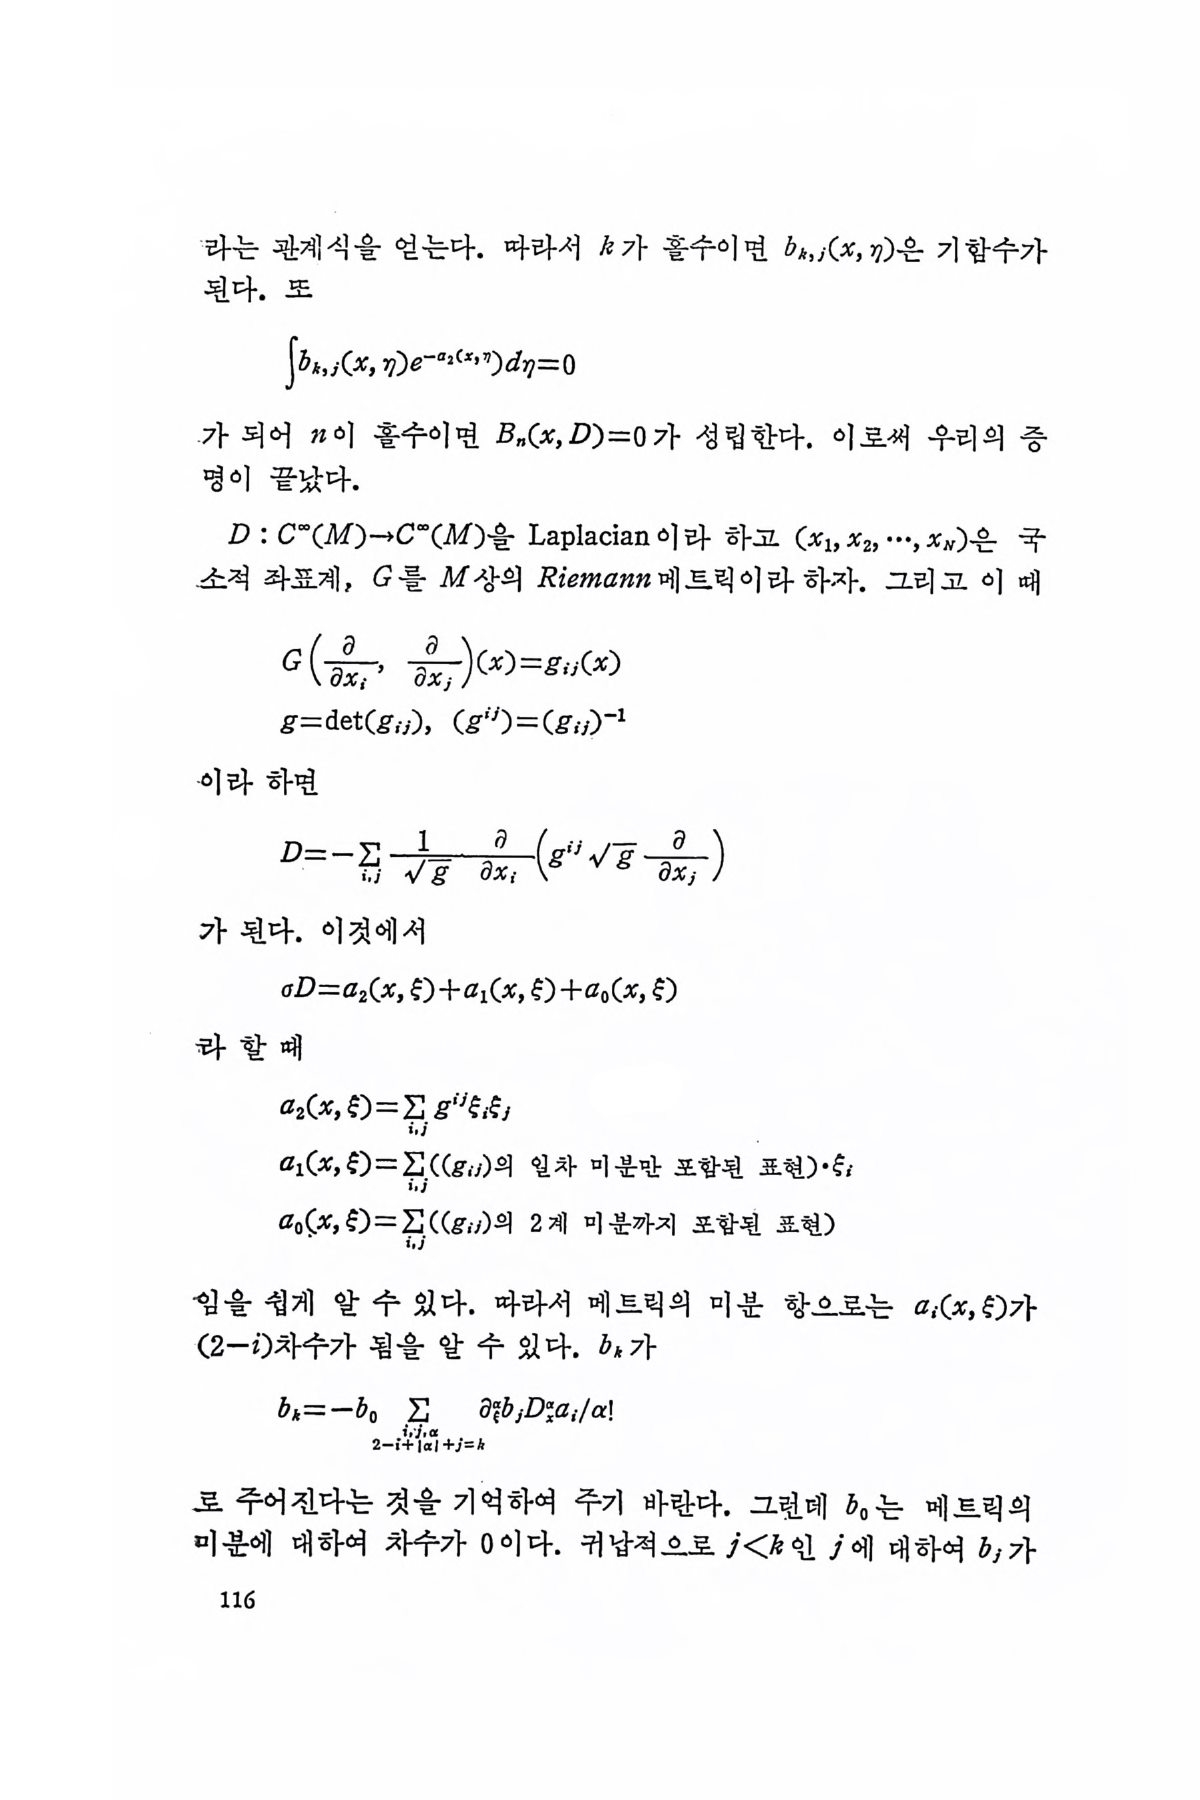 라는 관계식을 얻는다. 따라서 k가 홀수이면 b_{k,j}(x, η)은 기함수가
된다. 또
∫b_{k,j}(x, η)e^{-a_2(x,η)}dη=0
가 되어 n이 홀수이면 B_n(x, D)=0가 성립한다. 이로써 우리의 증
명이 끝났다.
D : C^∞(M)→C^∞(M)을 Laplacian이라 하고 (x_1, x_2, ⋯, x_N)은 국
소적 좌표계, G를 M상의 Riemann메트릭이라 하자. 그리고 이 때
G(∂/∂x_i, ∂/∂x_j)(x)=g_{ij}(x)
g=det(g_{ij}), (g^{ij})=(g_{ij})^{-1}
이라 하면
D=-∑_{i,j} 1/√g ∂/∂x_i (g^{ij}√g ∂/∂x_j)
가 된다. 이것에서
σD=a_2(x, ξ)+a_1(x, ξ)+a_0(x, ξ)
라 할 때
a_2(x, ξ)=∑_{i,j} g^{ij}ξ_iξ_j
a_1(x, ξ)=∑_{i,j}((g_{ij})의 일차 미분만 포함된 표현)·ξ_i
a_0(x, ξ)=∑_{i,j}((g_{ij})의 2계 미분까지 포함된 표현)
임을 쉽게 알 수 있다. 따라서 메트릭의 미분 항으로는 a_i(x, ξ)가
(2-i)차수가 됨을 알 수 있다. b_k가
b_k=-b_0 ∑_{i,j,α 2-i+|α|+j=k} ∂_ξ^α b_j D_x^α a_i/α!
로 주어진다는 것을 기억하여 주기 바란다. 그런데 b_0는 메트릭의
미분에 대하여 차수가 0이다. 귀납적으로 j<k인 j에 대하여 b_j가
116